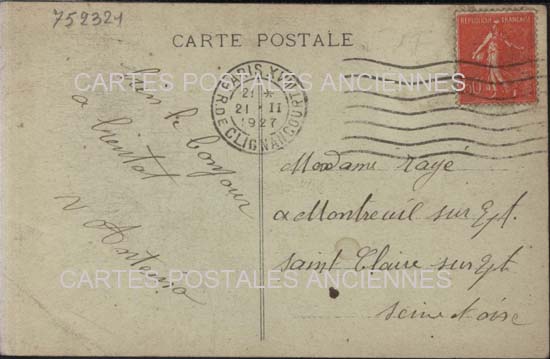 752321
CARTE POSTALE
REPUBLIQUE FRANÇAISE
PARIS XVIII
21 *
21 · II
1927
R. DE CLIGNANCOURT
CARTES POSTALES ANCIENNES
bonjour
a bientot
Madame Rayé
a Montreuil sur Ept.
Saint Claire sur Ept
Seine et oise
CARTES POSTALES ANCIENNES